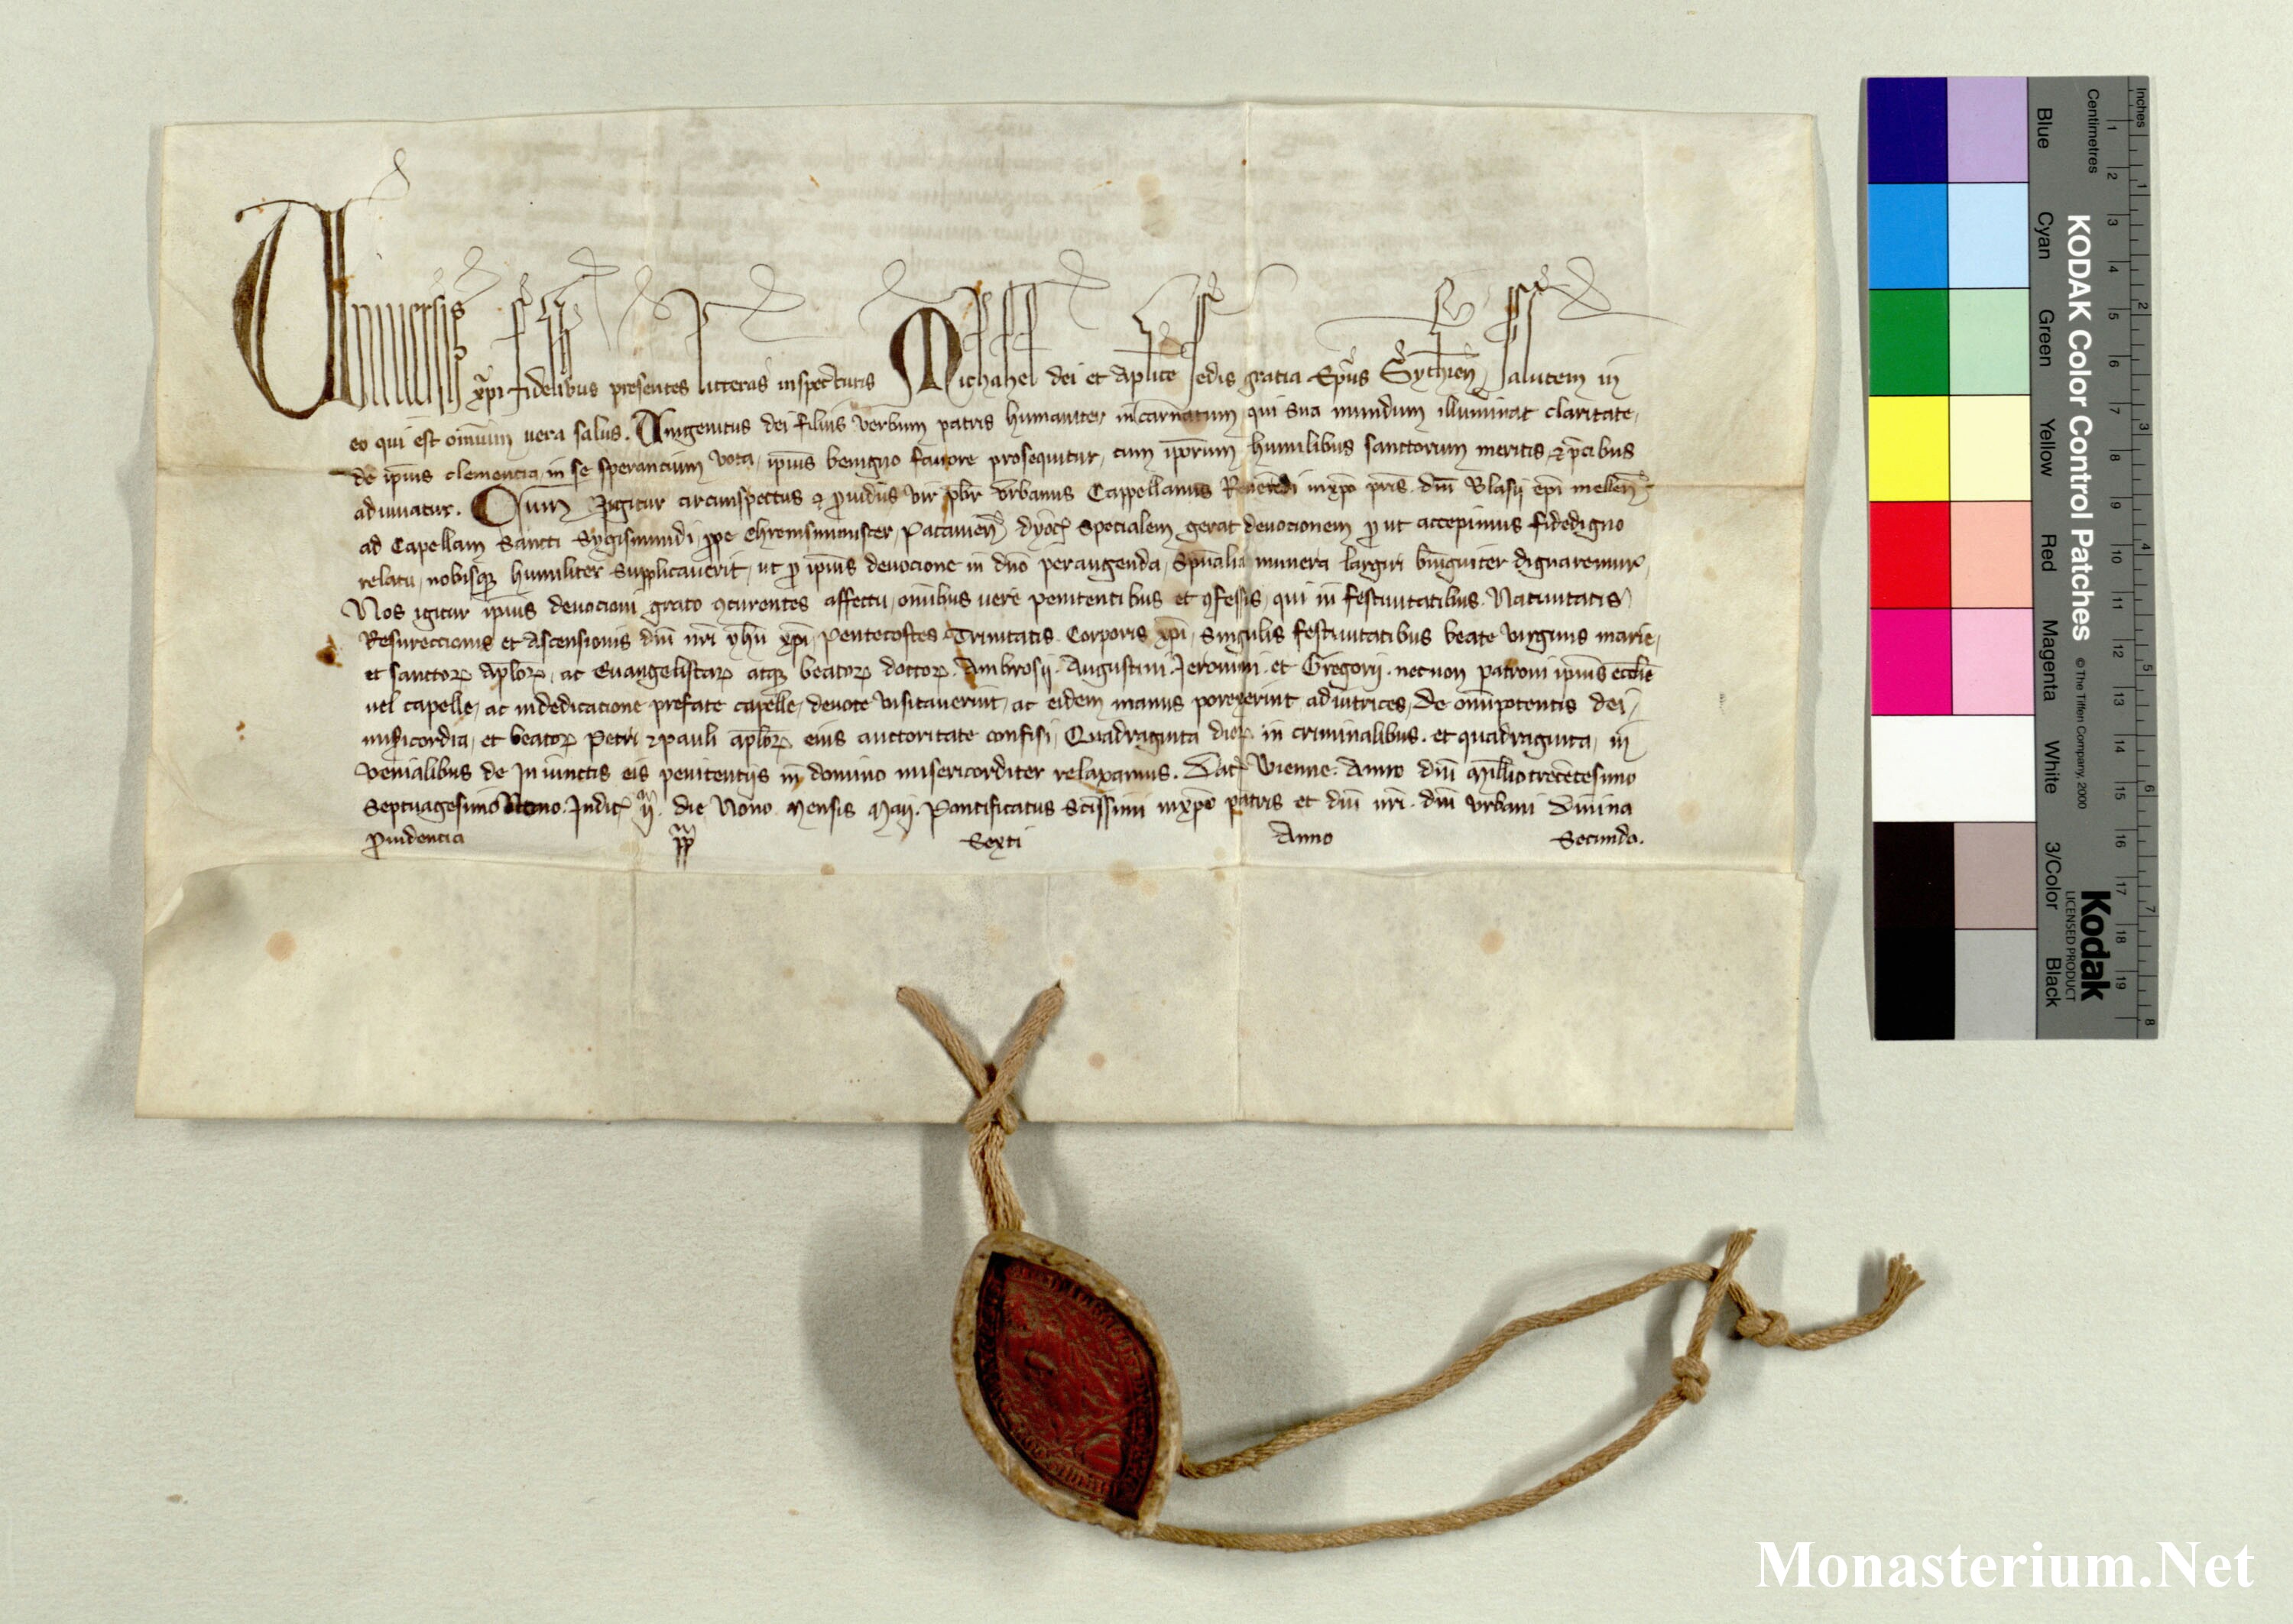 Uniuersis xp̄i fidelibus presentes litteras inspecturis Michahel dei et aplīce sedis gratia Ep̄us Sythien̄ salutem in
eo qui est om̄iūm uera salus. Unigenitus dei filius verbum patris humaniter incarnatum qui sua mundum illuminat claritate,
de ip̄ius clemencia in se sperancium vota, ip̄ius benigno fauore prosequitur, cum ip̄orum humilibus sanctorum meritis ⁊ p̄cibus
adiuuatur. Cum Igitur circumspectus ⁊ ꝓuidus vir pb̄r vrbanus Cappellanus Reuerēdi inxp̄o pr̄is dn̄i Blasij ep̄i mellen̄
ad Capellam Sancti Sygismundi ꝓpe chremsmunster, Patauien̄ dyoc̄ Specialem gerat deuocionem ꝓut accepimus fidedigno
relatu, nobisqꝫ humiliter Supplicauerit, ut ꝓ ip̄ius deuocione in dn̄o peraugenda, Sp̄ualia munera largiri benigniter dignaremur,
Nos igitur ip̄ius deuocioni grato ꝯcurentes affectu, om̄ibus uere penitentibus et ꝯfessis, qui in festiuitatibus Natiuitatis
Resureccionis et Ascensionis dn̄i nr̄i yhū xp̄i, pentecostes Trinitatis Corporis xp̄i, Singulis festiuitatibus beate virginis marie,
et sanctoꝝ ap̄loꝝ, ac Euangelistaꝝ atqꝫ beatoꝝ doctoꝝ Ambrosij. Augustini. Jeronimi. et Gregorij. necnon patroni ip̄ius ecclīe
uel capelle, ac indedicacione prefate capelle, deuote visitauerint, ac eidem manus porexerint adiutrices, de om̄ipotentis dei,
mis̄icordia, et beatoꝝ Petri ⁊ pauli ap̄loꝝ eius auctoritate confisi, Quadraginta dieꝝ in criminalibus. et quadraginta, in
venialibus de Iniunctis eis penitentijs in domino misericorditer relaxamus. Dat̄ Wienne. Anno dn̄i Mill̄io trecētesimo
Septuagesimo Nono. Indic̄ ij. die Nono Mensis Maij. Pontificatus Sc̄issimi inxp̄o patris et dn̄i nr̄i. dn̄i vrbani Diuina
ꝓuidencia pp̄ Sexti Anno Secundo.
KODAK Color Control Patches
© The Tiffen Company, 2000
Kodak
LICENSED PRODUCT
Inches
Centimetres
Blue Cyan Green Yellow Red Magenta White 3/Color Black
1 2 3 4 5 6 7 8 9 10 11 12 13 14 15 16 17 18 19
1 2 3 4 5 6 7 8
Monasterium.Net